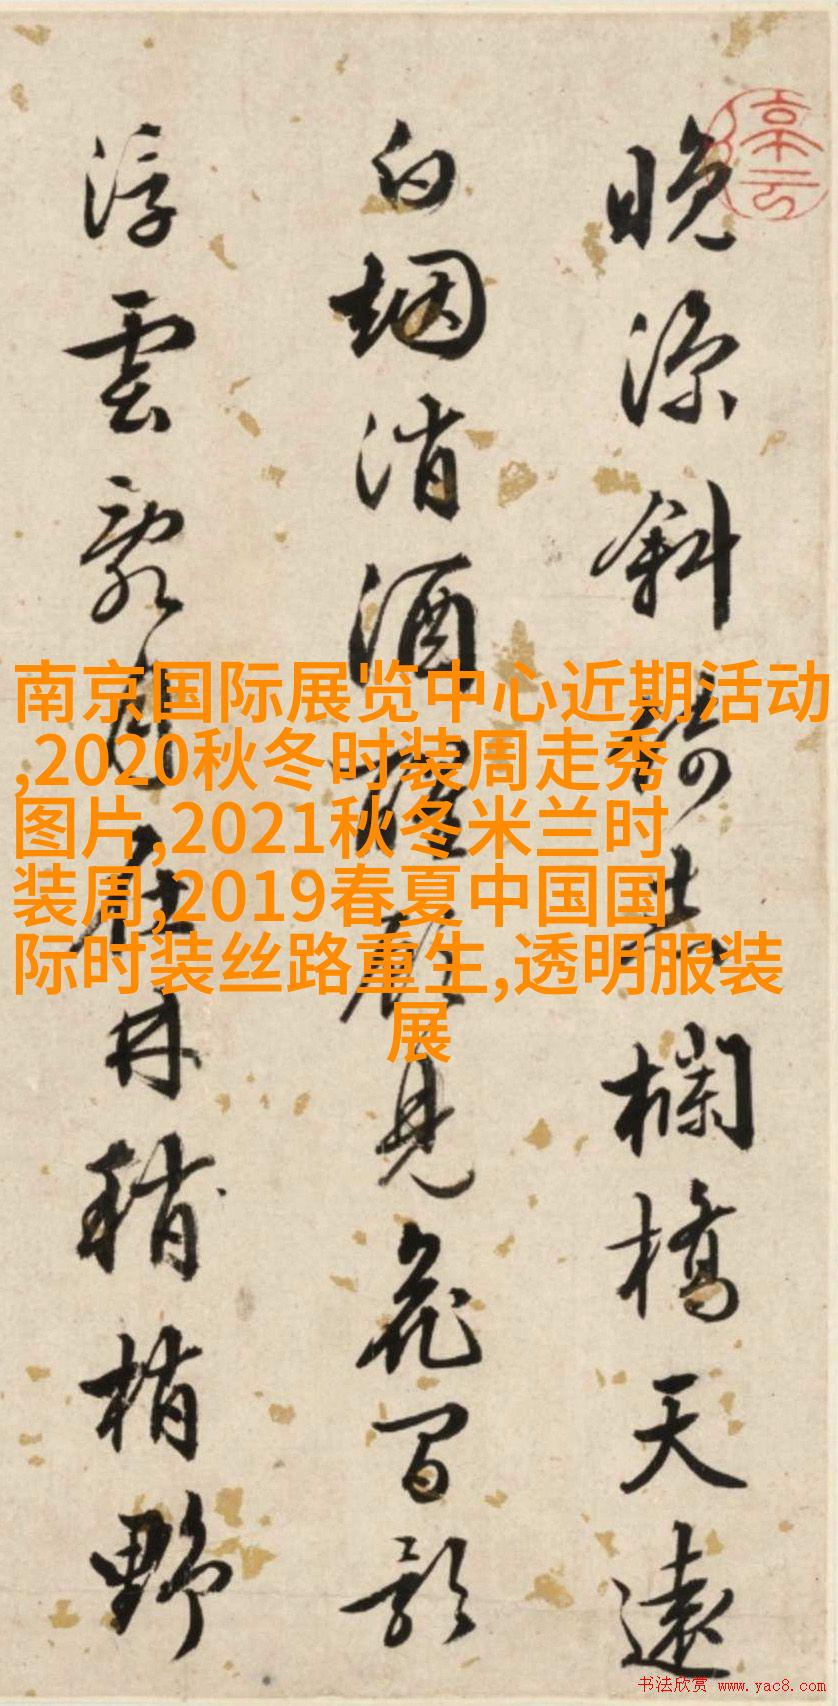 晚凉斜倚欄橋天遠
白烟消酒醒見花間影
浮雲月在林稍梢野
南京国际展览中心近期活动
,2020秋冬时装周走秀
图片,2021秋冬米兰时
装周,2019春夏中国国
际时装丝路重生,透明服装
展
书法欣赏 www.yac8.com